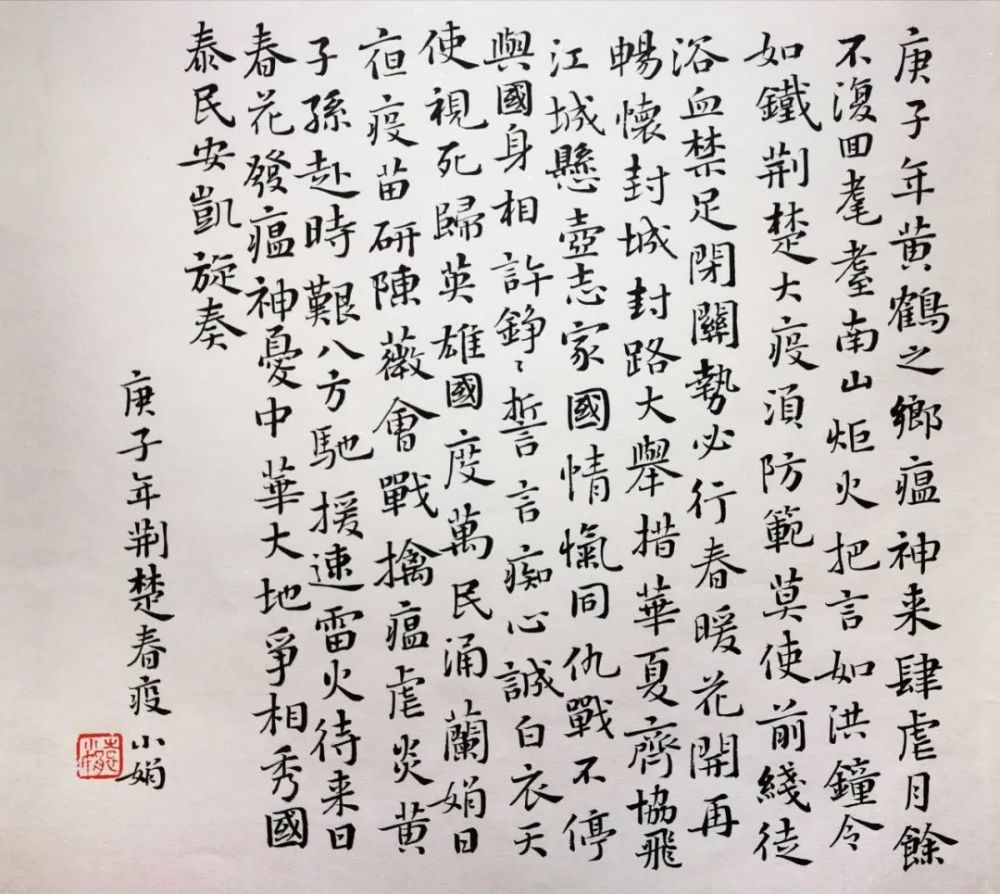 庚子年黄鶴之鄉瘟神来肆虐月餘
不復回耄耋南山炬火把言如洪鐘令
如鐵荆楚大疫須防範莫使前綫徒
浴血禁足閉關勢必行春暖花開再
暢懷封城封路大舉措華夏齊協飛
江城懸壺志家國情愾同仇戰不停
與國身相許錚〻誓言言痴心誠白衣天
使視死歸英雄國度萬民涌蘭娟日
夜疫苗研陳薇會戰擒瘟虐炎黄
子孫赴時艱八方馳援速雷火待来日
春花發瘟神憂中華大地爭相秀國
泰民安凱旋奏
庚子年荆楚春疫 小娟